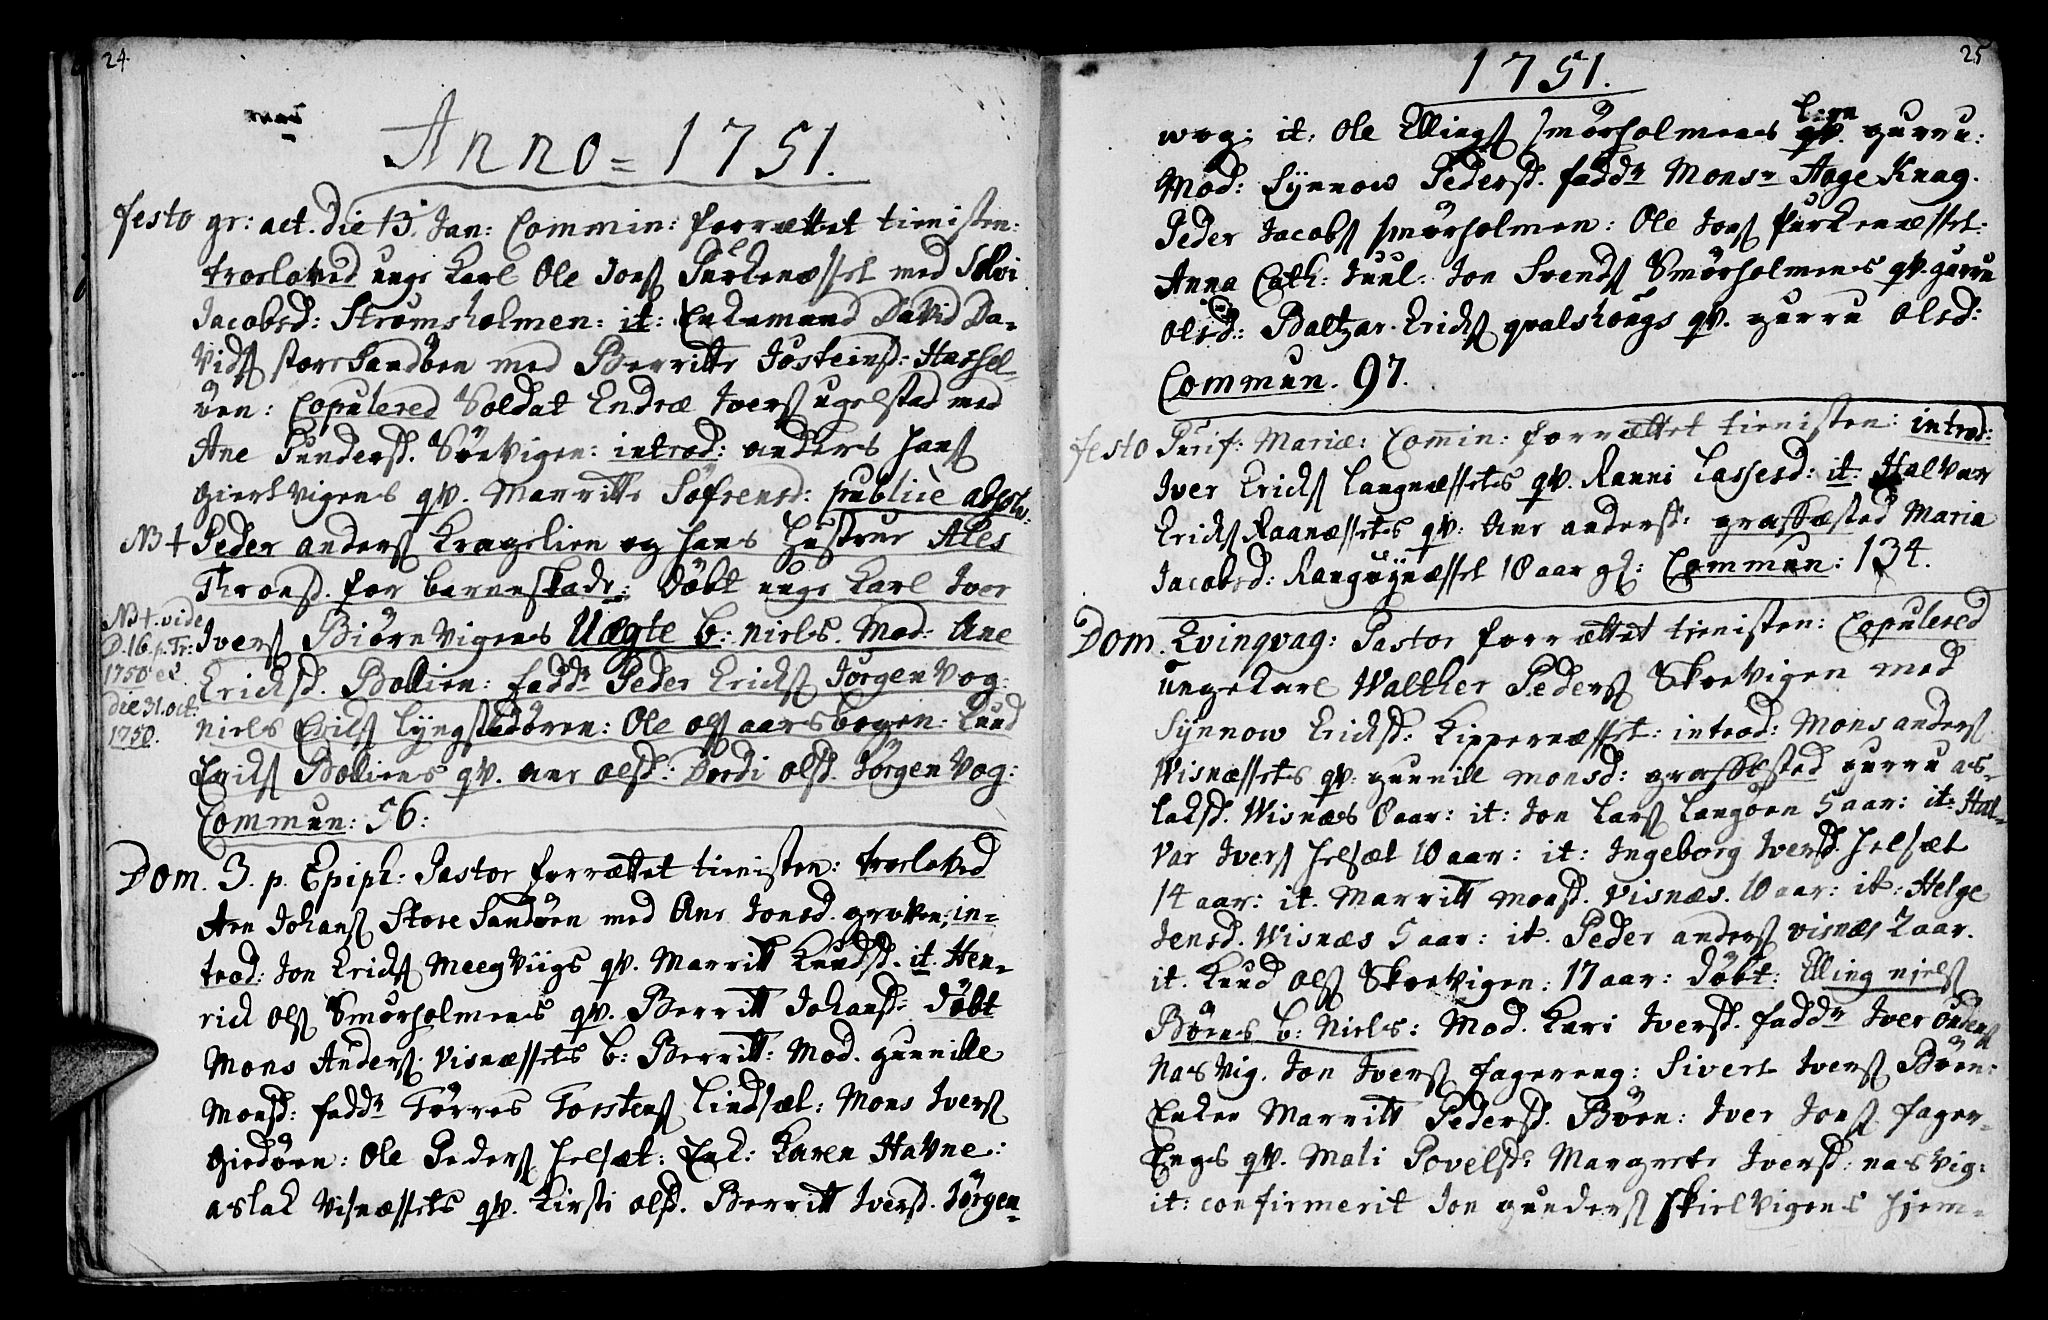 24
Anno = 1751.
festo gr: act. die 13. Jan: Commin: forrættet tienisten:
troeloved unge Karl Ole Jons Purkenæsset med Sølvi
Jacobsd: Strømsholmen: it: Enkemand David Da-
vids storeSandøen med Berritte Josteinsd: Hassel-
øen: Copulered Soldat Endræ Ivers ugelstad med
Ane Gundersd. Sørvigen: introd: anders Hans
Giertvigens qv. Marritte Søfrensd: publice absolv:
NB + Peder anders Kragelien og hans hustrue Ales
Thronsd. for barneskade: Døbt unge Karl Iver
Ivers Biørnvigens Uægte b: Niels. Mod: Ane
NB +. vide
D. 16. p. Tr:
1750 et
die 31. oct:
1750.
Ericksd. Bollien: fadd.r Peder Ericks Jørgenvog:
Niels Nils Lyngstadøren: Ole ols aarsbogen: Knud
Ericks Bolliens qv. ane olsd: Dordi olsd. Jørgenvog:
Commun: 56:
Dom. 3. p. Epiph: Pastor forrættet tienisten: troeloved
Arn Johans Store Sandøen med Ane Jonsd. groven: in-
trod: Jon Ericks Meegviigs qv. Marritt Knudsd. it. Hen-
rick ols Smørholmens qv. Berritt Johansd: Døbt
Mons Anders: Visnæssets b: Berritt: Mod. gunnille
Monsd: fadd.r Torres Torstens Lindsæt: Mons Ivers
Giedøen: Ole Peders Helsæt: Enk: Karen Havne:
aslak Visnæssets qv. Kirsti olsd. Berritt Iversd. Jørgen-
25
1751.
wog: it: Ole Ellings Smørholmens qv. gurru:
Mod: Synnow Pedersd. fadd.r Mons.r Aage Knag.
Peder Jacobs smørholmen: Ole Jons Purkenæsset:
Anna Cath: Juul: Jon Svends Smørholmens qv. gurru
olsd: Baltzar Ericks qvalshougs qv. gurru olsd:
Commun. 97.
festo Purif: Mariæ: Comin: forrættet tienisten: introd:
Iver Ericks Langnæssets qv. Ranni Lassesd: it: Halvar
Ericks Raanæssets qv: Ane andersd: grafæsted Maria
Jacobsd: Rangøynæsset 18 aar gl: Commun: 134.
Dom. Qvinqvag: Pastor forrættet tienisten: Copulered
ungekarl Walther Peders Skotvigen med
Synnow Ericksd: Kippernæsset: introd: Mons anders
Wisnæssets qv: gunnill monsd: grafæsted gurru as-
laksd. Wisnæs 8 aar: it: Jon Lars Langøen 5 aar: it: Hal-
var Ivers Helsæt 10 aar: it: Ingeborg Iversd. Helsæt
14 aar: it. Marritt monsd. Visnæs. 10 aar: it: Helge
Jensd. Wisnæs 5 aar: it. Peder anders visnæs 2 aar.
it. Knud ols Skotvigen: 17 aar: døbt: Elling niels
Bøens b: Niels: Mod. Kari Iversd. fadd.r Iver
Nasvig. Jon Ivers Fagereng: Sivert Ivers Bøen:
Enken Marritt Pedersd. Bøen: Iver Jons Fager-
Engs qv. Mali Povelsd: Margrete Iversd: nasvig:
it: confirmerit Jon gunders Skielvigens hjem-